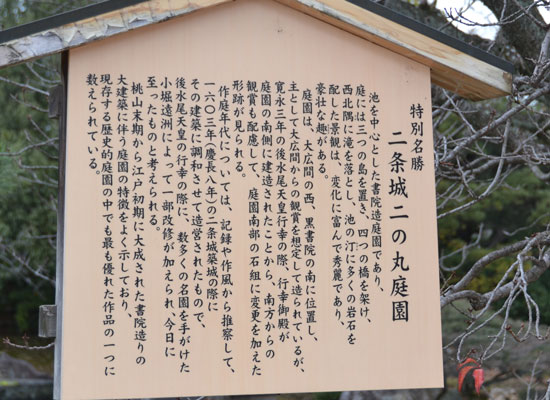 特別名勝
二条城二の丸庭園
池を中心とした書院造庭園であり、
庭には三つの島を置き、四つの橋を架け、
西北隅に滝を落とし、池の汀に多くの岩石を
配した景観は、変化に富んで秀麗であり、
豪壮な趣がある。
庭園は、大広間の西、黒書院の南に位置し、
主として大広間からの観賞を想定して造られているが、
寛永三年の後水尾天皇行幸の際、行幸御殿が
庭園の南側に建造されたことから、南方からの
観賞も配慮して、庭園南部の石組に変更を加えた
形跡が見られる。
作庭年代については、記録や作風から推察して、
一六〇三年(慶長八年)の二条城築城の際に
その建築に調和させて造営されたもので、
後水尾天皇の行幸の際に、数多くの名園を手がけた
小堀遠州によって一部改修が加えられ、今日に
至ったものと考えられる。
桃山末期から江戸初期に大成された書院造りの
大建築に伴う庭園の特徴をよく示しており、
現存する歴史的庭園の中でも最も優れた作品の一つに
数えられている。